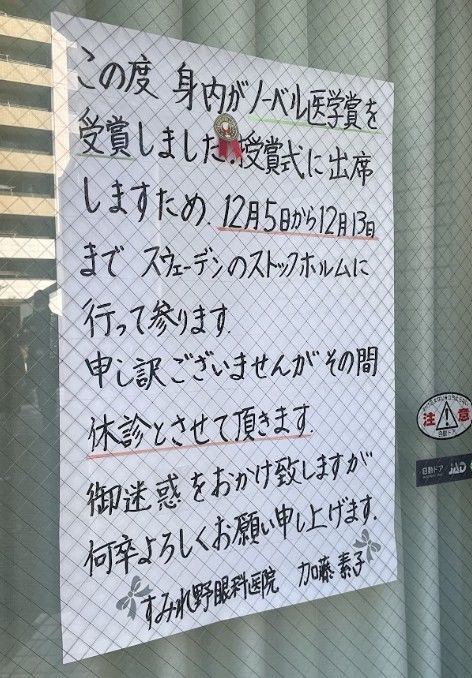 この度 身内がノーベル医学賞を
受賞しました.授賞式に出席
しますため.12月5日から12月13日
まで スウェーデンのストックホルムに
行って参ります.
申し訳ございませんが その間
休診とさせて頂きます.
御迷惑をおかけ致しますが
何卒よろしくお願い申し上げます.
すみれ野眼科医院 加藤素子
注意
自動ドア
自動ドア JAD